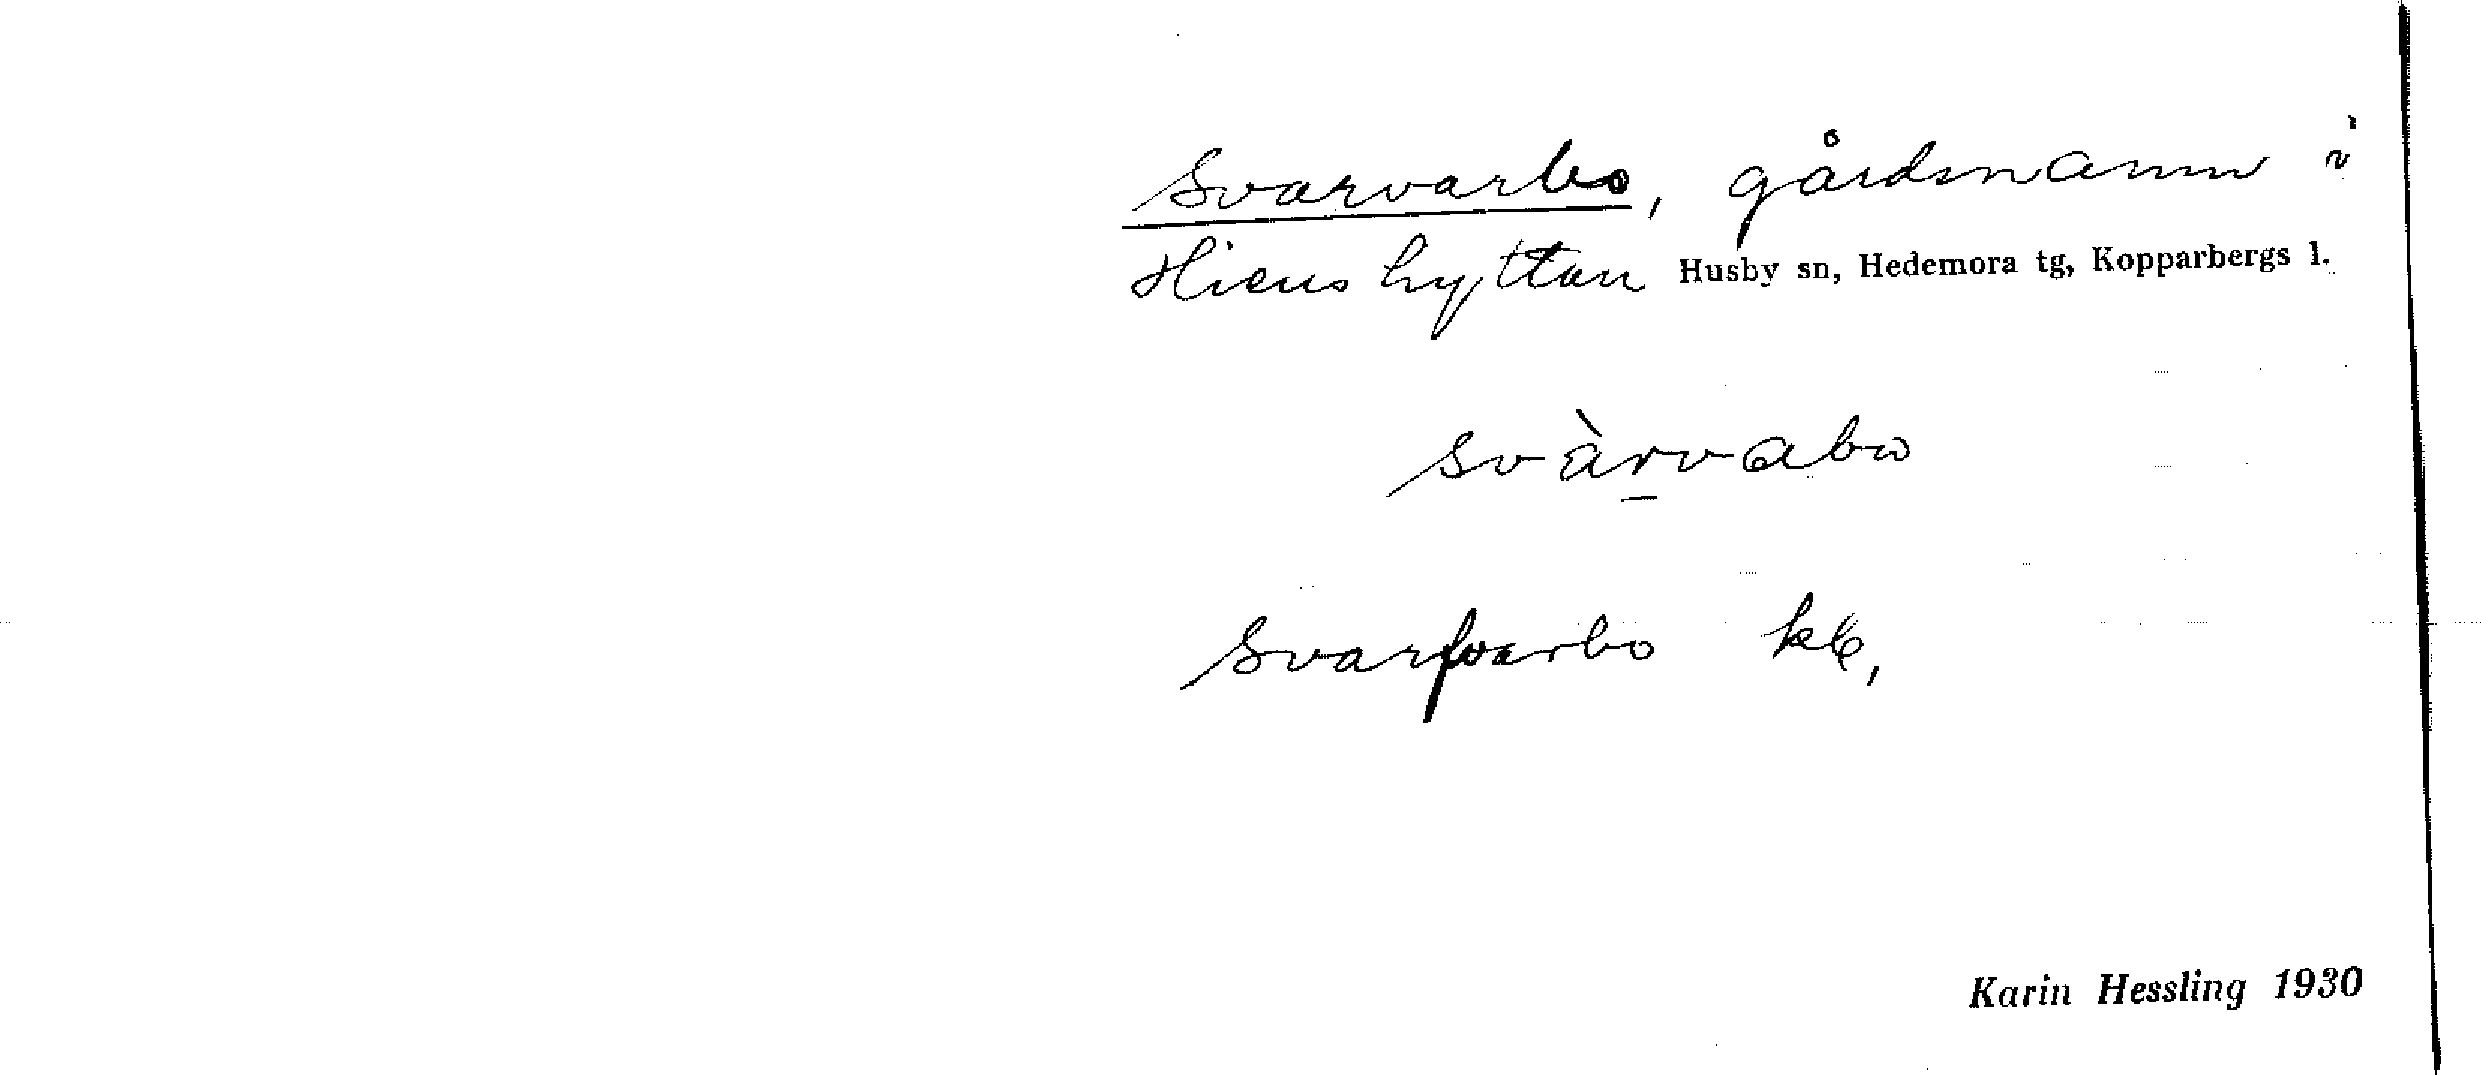 Svarvarbo, gårdsnamn i
Hienshyttan Husby sn, Hedemora tg, Kopparbergs l.
svàrvabω
Svarfvarbo kb,
Karin Hessling 1930